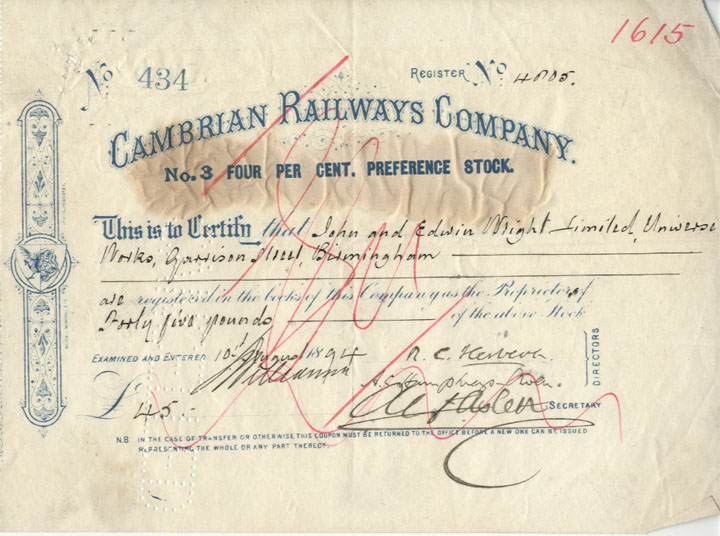 1615
No 434
REGISTER No 4805.
CAMBRIAN RAILWAYS COMPANY.
No. 3 FOUR PER CENT. PREFERENCE STOCK.
This is to Certify that John and Edwin Wright Limited, Universe
Works, Garrison Street, Birmingham
are registered in the books of this Company as the Proprietor of
Forty five pounds of the above Stock
EXAMINED AND ENTERED 10th August 1894
DIRECTORS
£ 45 -
SECRETARY
N.B IN THE CASE OF TRANSFER OR OTHERWISE THIS COUPON MUST BE RETURNED TO THE OFFICE BEFORE A NEW ONE CAN BE ISSUED
REPRESENTING THE WHOLE OR ANY PART THEREOF.